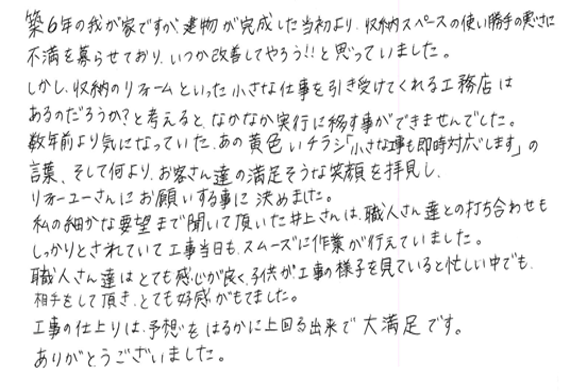 築6年の我が家ですが、建物が完成した当初より、収納スペースの使い勝手の悪さに
不満を募らせており、いつか改善してやろう!!と思っていました。
しかし、収納のリフォームといった小さな仕事を引き受けてくれる工務店は
あるのだろうか?と考えると、なかなか実行に移す事ができませんでした。
数年前より気になっていた、あの黄色いチラシ「小さな工事も即時対応します」の
言葉、そして何より、お客さん達の満足そうな笑顔を拝見し、
リフォーユーさんにお願いする事に決めました。
私の細かな要望まで聞いて頂いた井上さんは、職人さん達との打ち合わせも
しっかりとされていて工事当日も、スムーズに作業が行えていました。
職人さん達はとても感じが良く、子供が工事の様子を見ていると忙しい中でも、
相手をして頂き、とても好感がもてました。
工事の仕上りは、予想をはるかに上回る出来で大満足です。
ありがとうございました。